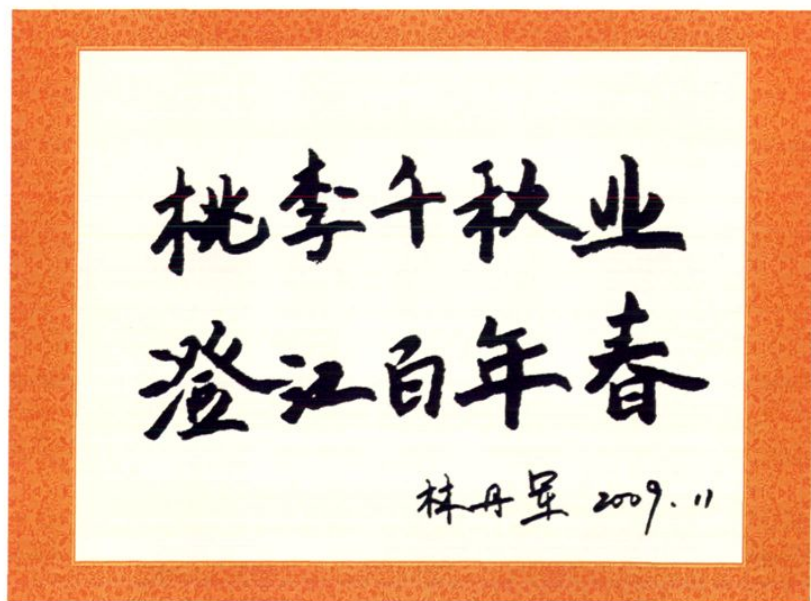 桃李千秋业
澄江百年春
林丹军 2009.11